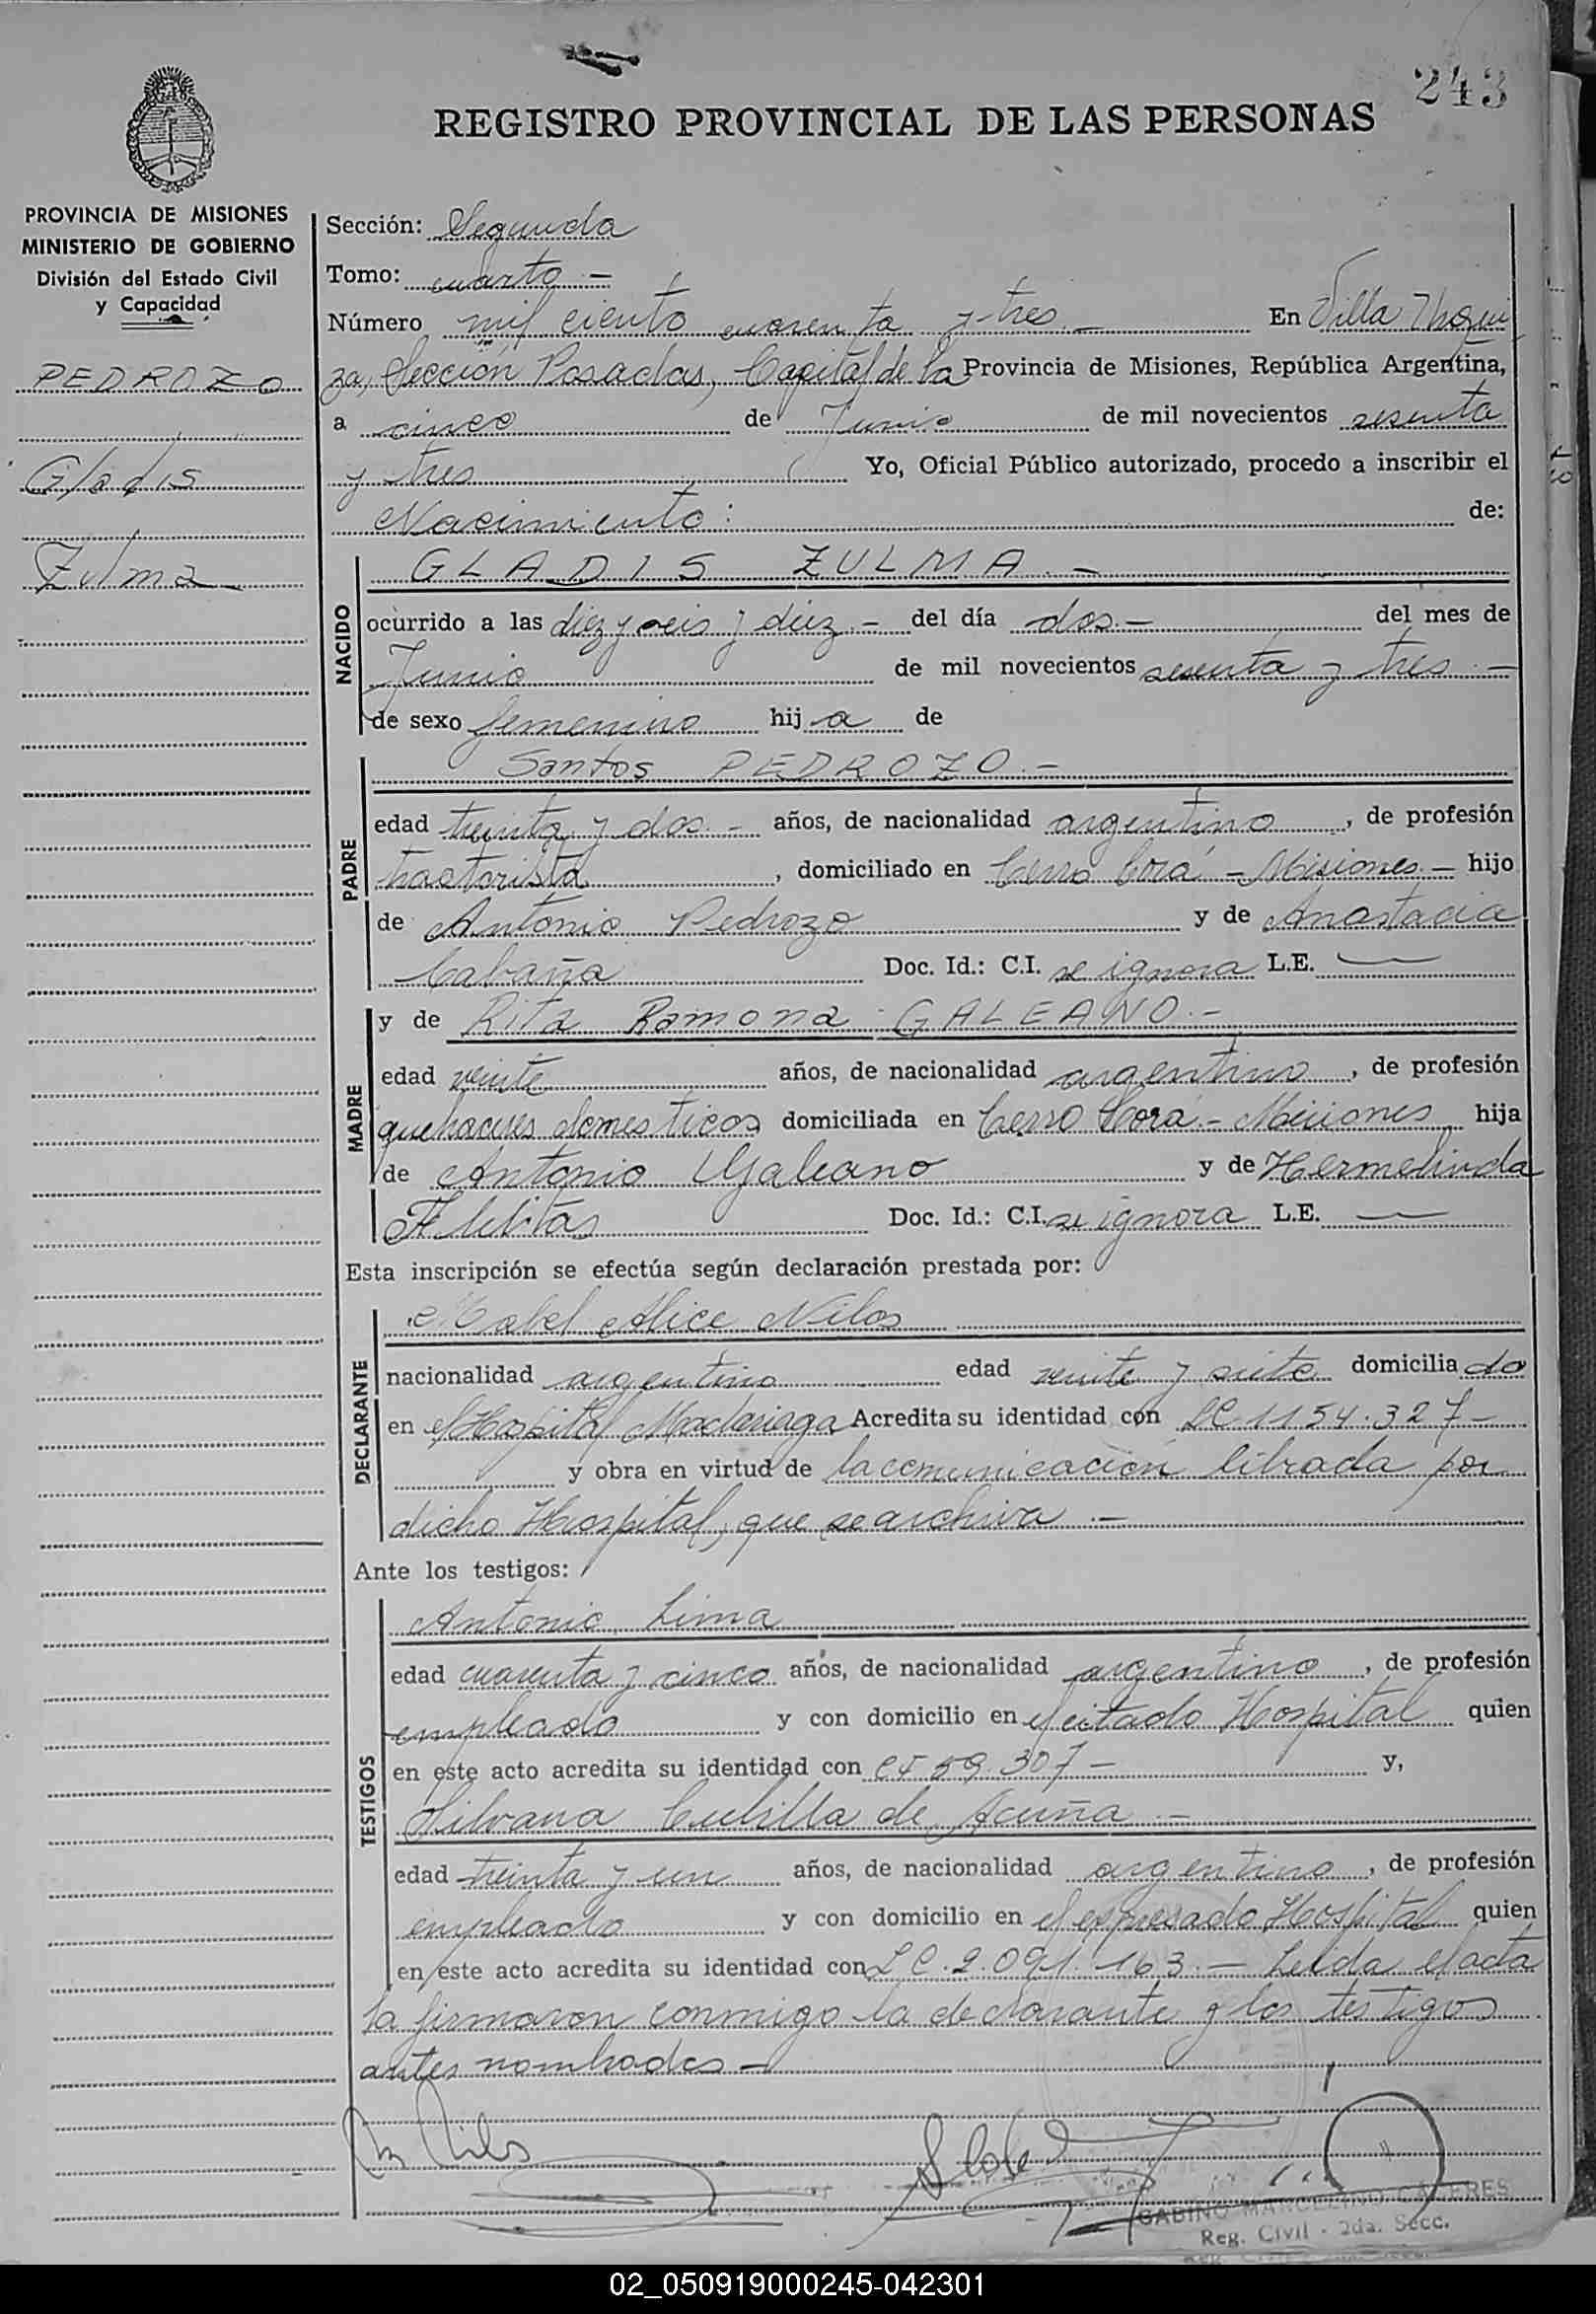 243
REGISTRO PROVINCIAL DE LAS PERSONAS
PROVINCIA DE MISIONES
MINISTERIO DE GOBIERNO
División del Estado Civil
y Capacidad
PEDROZO
Gladis
Zulma
Sección: Segunda
Tomo: cuarto.-
Número mil ciento cuarenta y tres.- En Villa
za, Sección Posadas, Capital de la Provincia de Misiones, República Argentina,
a cinco de Junio de mil novecientos sesenta
y tres Yo, Oficial Público autorizado, procedo a inscribir el
Nacimiento: de:
NACIDO
GLADIS ZULMA.-
ocurrido a las diez y seis y diez.- del día dos.- del mes de
Junio de mil novecientos sesenta y tres.-
de sexo femenino hija de
PADRE
Santos PEDROZO.-
edad treinta y dos.- años, de nacionalidad argentino, de profesión
tractorista, domiciliado en Cerro Corá - Misiones.- hijo
de Antonio Pedrozo y de Anastacia
Cabaña Doc. Id.: C.I. se ignora L.E. —
MADRE
y de Rita Ramona GALEANO.-
edad veinte años, de nacionalidad argentino, de profesión
quehaceres domesticos domiciliada en Cerro Corá.- Misiones hija
de Antonio Galeano y de Hermelinda
Doc. Id.: C.I. se ignora L.E. —
Esta inscripción se efectúa según declaración prestada por:
DECLARANTE
Mabel Alice Nilos
nacionalidad argentino edad veinte y siete domiciliado
en el Hospital Madariaga Acredita su identidad con LC 1154.327-
y obra en virtud de la comunicación librada por
dicho Hospital, que se archiva.-
Ante los testigos:
TESTIGOS
Antonio Lima
edad cuarenta y cinco años, de nacionalidad argentino, de profesión
empleado y con domicilio en el citado Hospital quien
en este acto acredita su identidad con CI 59.307- y,
Silvana Cubilla de Acuña.-
edad treinta y un años, de nacionalidad argentino, de profesión
empleado y con domicilio en el expresado Hospital quien
en este acto acredita su identidad con LC.2.091.163.- Leida el acta
la firmaron conmigo la declarante y los testigos
antes nombrados-
GABINO MARCELINO CACERES
Reg. Civil - 2da. Secc.
02_050919000245-042301